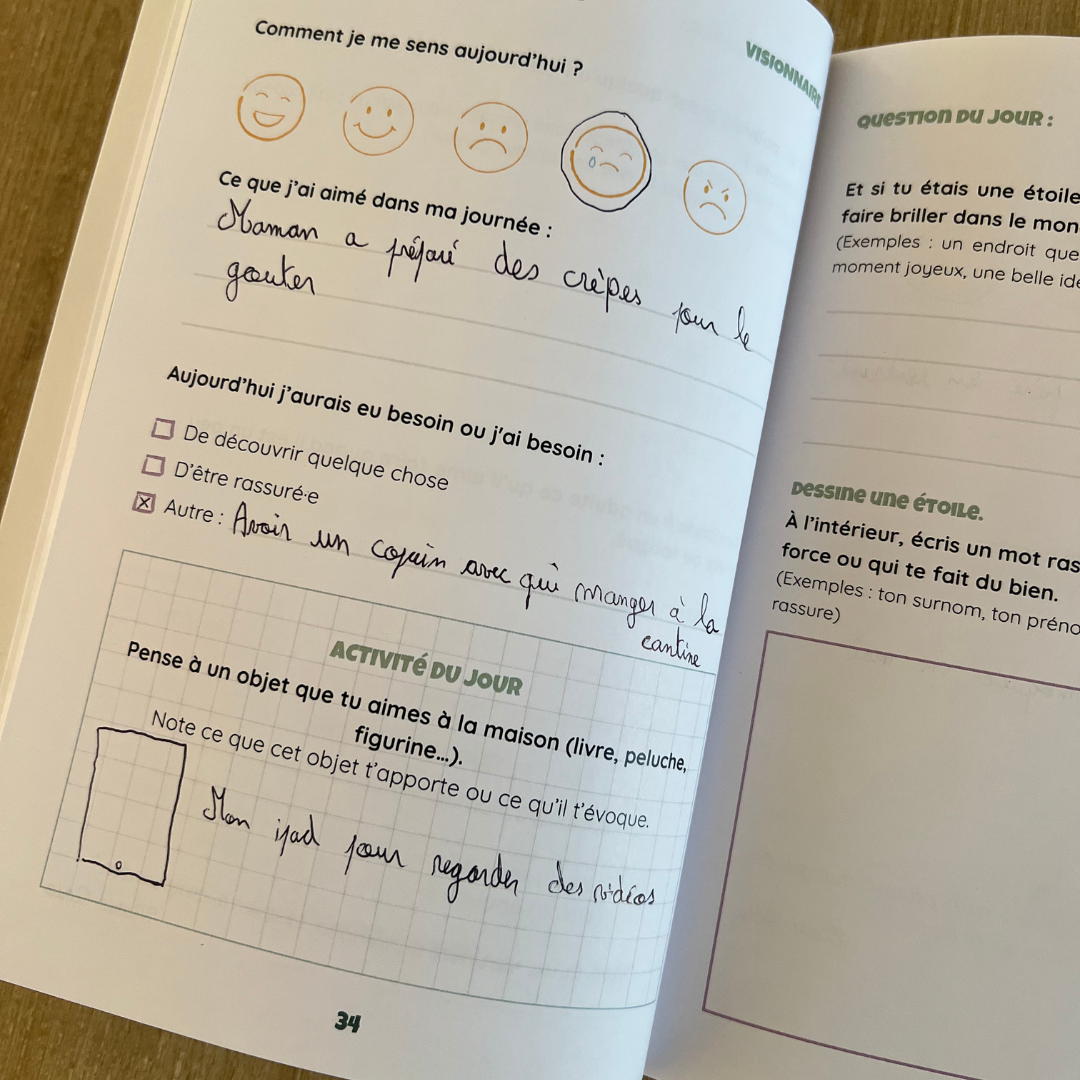 Comment je me sens aujourd'hui ?
VISIONNAIRE
Ce que j'ai aimé dans ma journée :
Maman a préparé des crèpes pour le
gouter
Aujourd'hui j'aurais eu besoin ou j'ai besoin :
De découvrir quelque chose
D'être rassuré·e
Autre : Avoir un copain avec qui manger à la
cantine
ACTIVITÉ DU JOUR
Pense à un objet que tu aimes à la maison (livre, peluche,
figurine...).
Note ce que cet objet t'apporte ou ce qu'il t'évoque.
Mon ipad pour regarder des vidéos
34
QUESTION DU JOUR :
Et si tu étais une étoile
faire briller dans le mon
(Exemples : un endroit que
moment joyeux, une belle idé
DESSINE UNE ÉTOILE.
À l'intérieur, écris un mot ras
force ou qui te fait du bien.
(Exemples : ton surnom, ton préno
rassure)